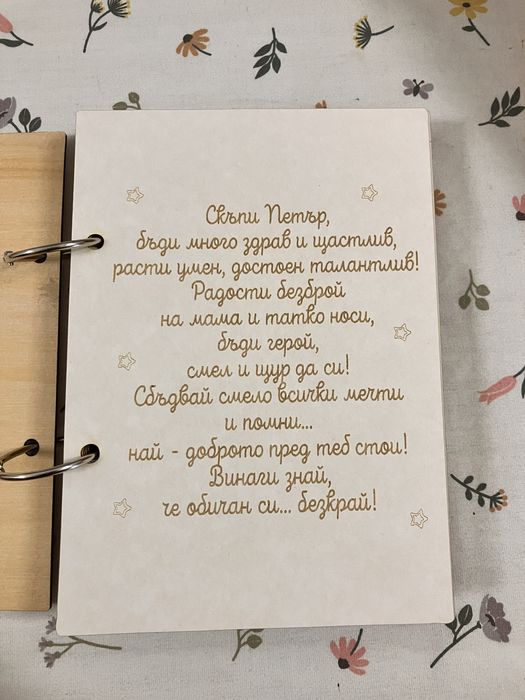 Скъпи Петър,
бъди много здрав и щастлив,
расти умен, достоен талантлив!
Радости безброй
на мама и татко носи,
бъди герой,
смел и щур да си!
Сбъдвай смело всички мечти
и помни...
най - доброто пред теб стои!
Винаги знай,
че обичан си... безкрай!